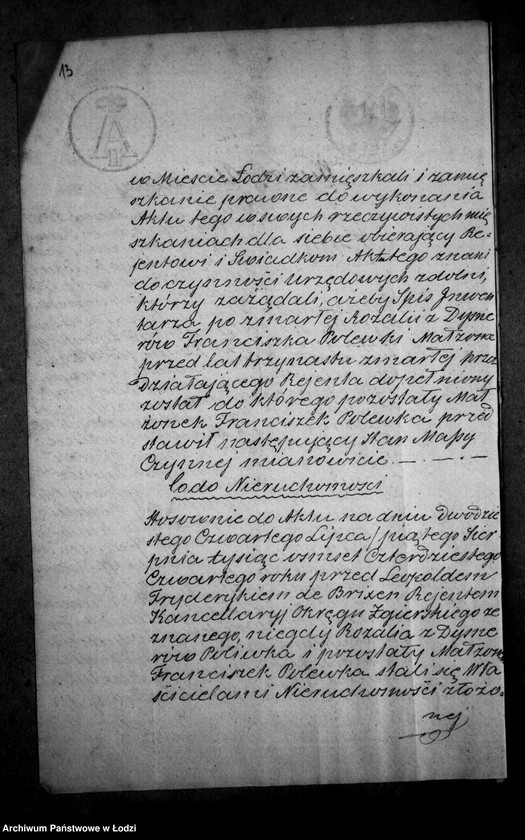 13
w Mieście Łodzi zamięszkali i zamię
szkanie prawne do wykonania
Aktu tego w swych rzeczywistych mię
szkaniach dla siebie obierający Re-
jentowi i Świadkom Aktu tego znani
do czynności Urzędowych zdolni,
którzy zażądali, ażeby Spis Inwen
tarza po zmarłej Rozalii z Dyme
rów Franciszka Polewki Małżonce
przed lat trzynastu zmarłej przez
Działającego Rejenta dopełniony
został do którego pozostały Mał
żonek Franciszek Polewka przed
stawił następujący Stan Massy
Czynnej mianowicie
Co do Nieruchomości
Stosownie do Aktu na dniu dwudzie
stego Czwartego Lipca/ piątego Sier
pnia tysiąc ośmset Czterdziestego
Czwartego roku przed Leopoldem
Fryderykiem de Brixen Rejentem
Kancellaryi Okręgu Zgierskiego ze
znanego, niegdy Rozalia z Dyme
rów Poliwka i pozostały Małżonek
Franciszek Polewka stali się Wła
ścicielami Nieruchomości złożo-
nej
Archiwum Państwowe w Łodzi